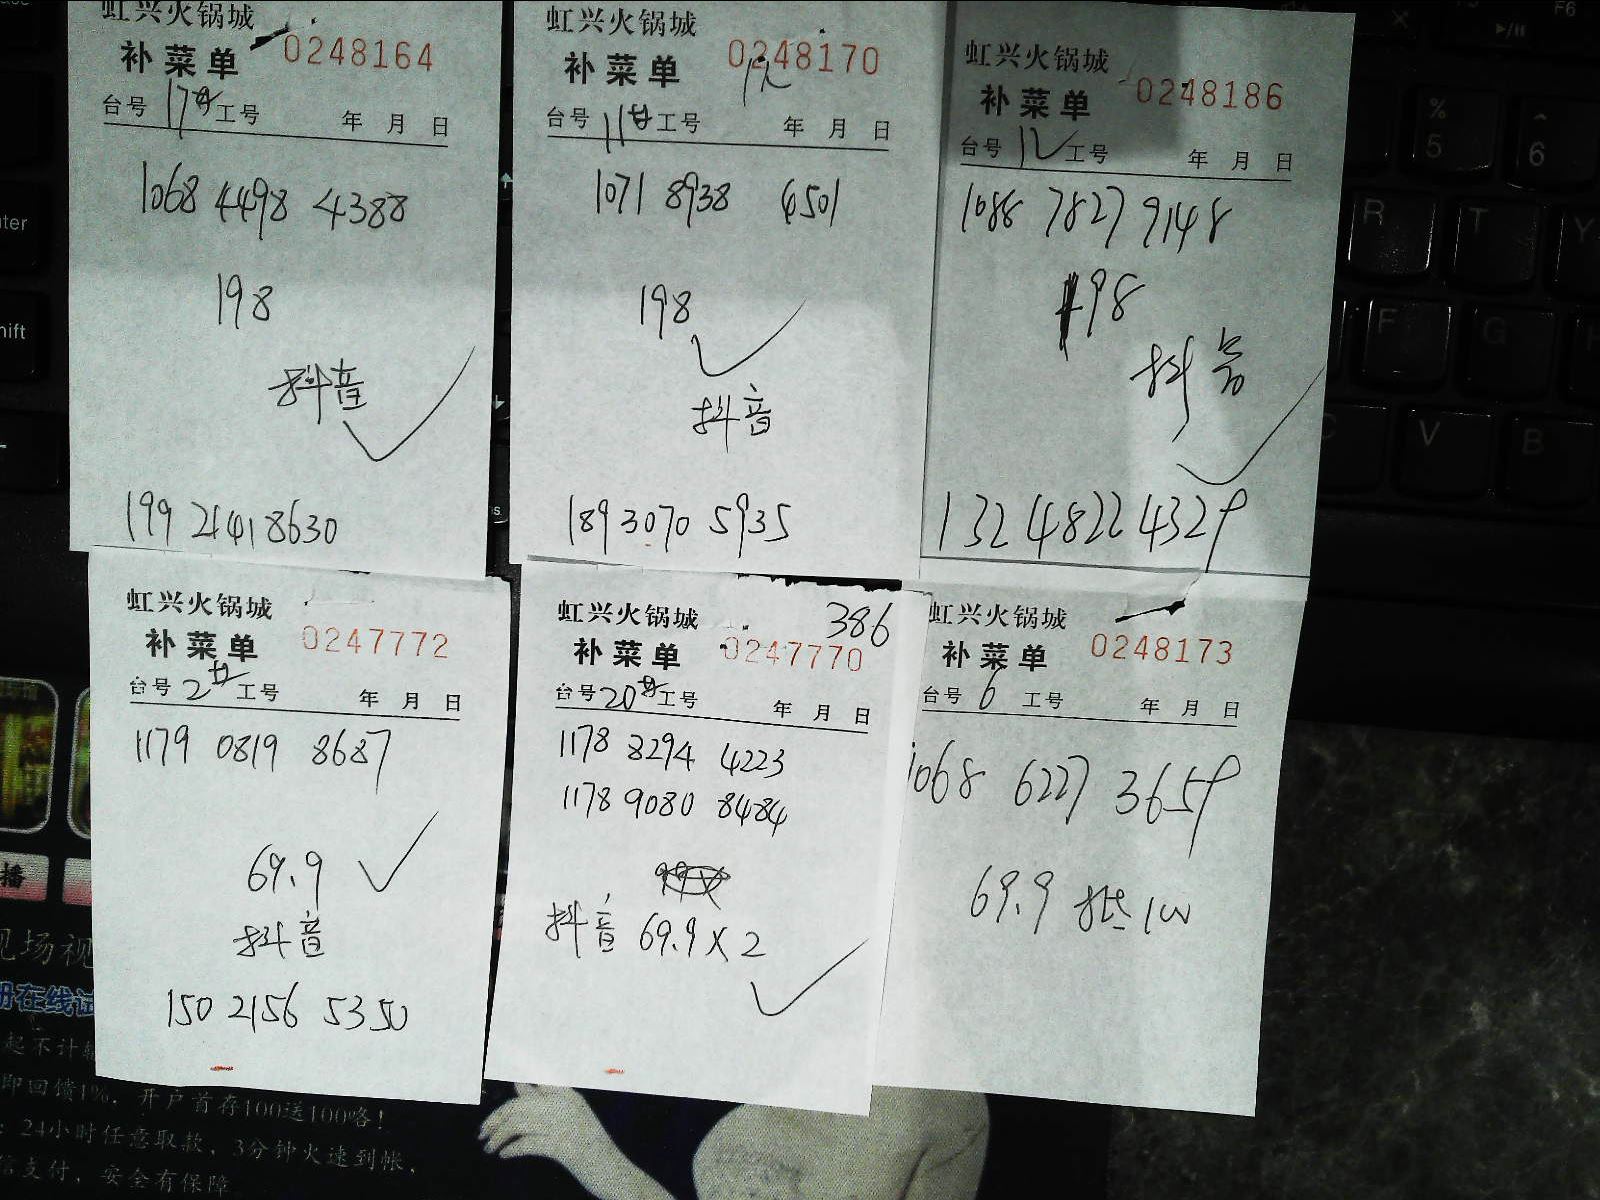 虹兴火锅城
补菜单 0248164
台号 17 工号 年 月 日
1068 4498 4388
198
抖音
199 21418630
虹兴火锅城
补菜单 0248170
台号 11 工号 年 月 日
1071 8938 4501
198
抖音
189 3070 5935
虹兴火锅城
补菜单 0248186
台号 12 工号 年 月 日
1088 7827 9148
198
抖音
132 4822 4329
虹兴火锅城
补菜单 0247772
台号 2 工号 年 月 日
1179 0819 8687
69.9
抖音
150 2156 5350
386
虹兴火锅城
补菜单 0247770
台号 20 工号 年 月 日
1178 8294 4223
1178 9080 8484
抖音 69.9×2
虹兴火锅城
补菜单 0248173
台号 6 工号 年 月 日
1068 6227 3659
69.9 抵100
现场视
册在线试
起不计
即回馈1%，开户首存100送100咯！
：24小时任意取款，3分钟火速到帐，
信支付，安全有保障
播
F6
%
5
^
6
R
T
Y
F
G
H
C
V
B